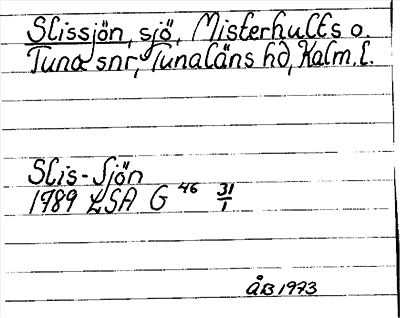 Slissjön, sjö, Misterhults o.
Tuna snr, Tunaläns hd, Kalm. l.
Slis-Sjön
1789 LSA G 46 31/1
ÅB 1973